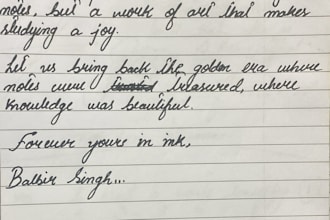 notes, but a work of art that makes
studying a joy.
Let us bring back the golden era where
notes were treasured, where
knowledge was beautiful.
Forever yours in ink,
Balbir Singh...